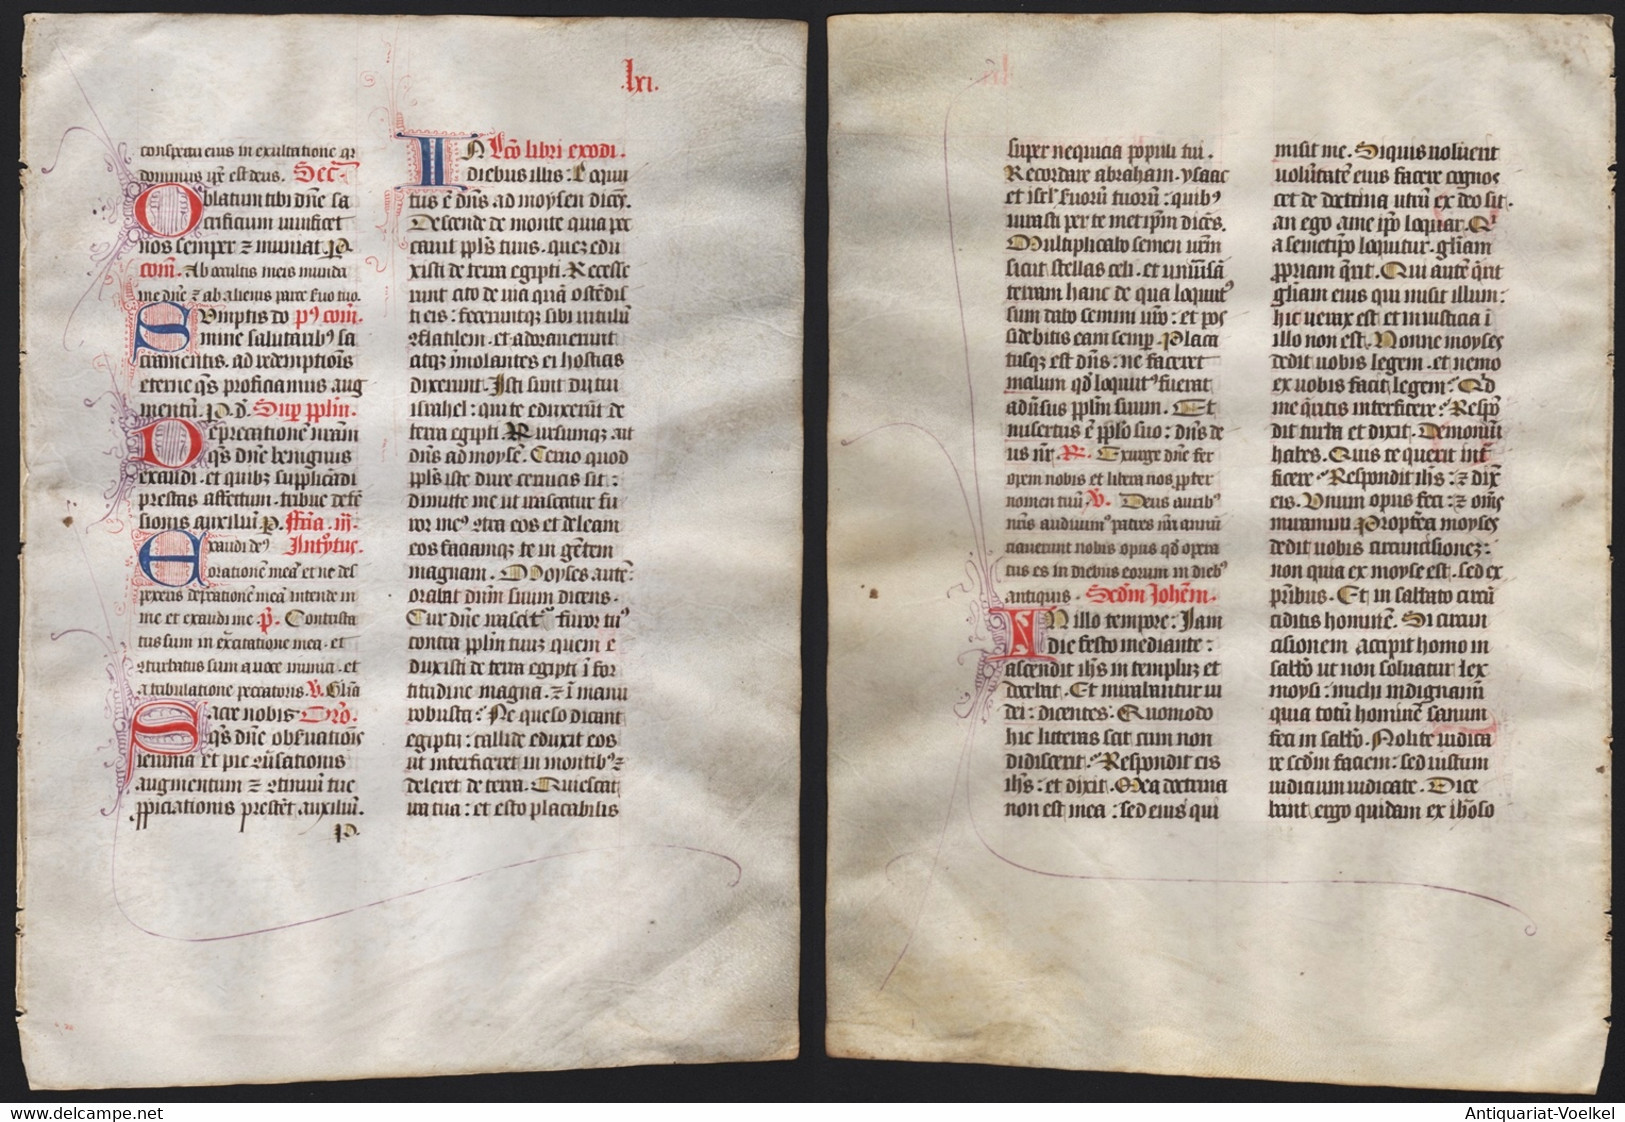 lxi.
conspectu eius in exultatione qr
dominus ipe est deus. Secr
Oblatum tibi dne sa
crificium uiuificet
nos semper ⁊ muniat. P.
com. Ab occultis meis munda
me dne ⁊ ab alienis parce suo tuo.
Sumptis do pꝰ com.
mine salutaribꝰ sa
cramentis. ad redemptiois
eterne qs proficiamus aug
mentu. P. d. Sup pplm.
Deprecatione nram
qs dne benignus
exaudi. et quibꝫ supplicadi
prestas affectum. tribue defe
sionis auxiliu. P. Feria. iij.
Exaudi deꝰ Introytus.
oratione mea et ne des
pexeris dep̄catione mea intende in
me et exaudi me. p̄. Contrista
tus sum in exercitatione mea. et
9turbatus sum a uoce inimici. et
a tribulatione peccatoris. V. Glia
Sacre nobis Oro.
qs dne obseruatiois
ieiunia et pie 9uersationis
augmentum ⁊ 9tinuu tue
ppiciationis prestet auxiliu.
P.
IN Lco libri exodi.
diebus illis: Locu
tus e dns ad moysen dices.
Descende de monte quia pec
cauit ppls tuus. quez edu
xisti de terra egipti. Recesse
runt cito de uia qua ostedis
ti eis: feceruntqꝫ sibi uitulu
9flatilem. et adorauerunt
atqꝫ imolantes ei hosticis
dixerunt. Isti sunt dii tui
israhel: qui te eduxerut de
terra egipti. Rursumqꝫ ait
dns ad moyse. Cerno quod
ppls iste dure ceruicis sit:
dimitte me ut irascatur fu
ror meꝰ 9tra eos et deleam
eos faciamqꝫ te in getem
magnam. Moyses aute:
orabat dnm suum dicens.
Cur dne irascit furor tuꝰ
contra pplm tuuꝫ quem e
duxisti de terra egipti i for
titudine magna: ⁊ i manu
robusta: Ne queso dicant
egiptii: callide eduxit eos
ut interficeret in montibꝰ ⁊
deleret de terra. Quiescat
ira tua: et esto placabilis
super nequicia populi tui.
Recordare abraham. ysaac
et isrl seruoru tuoru: quibꝰ
iurasti per te met ipm dices.
Multiplicabo semen urm
sicut stellas celi. et uniuersa
terram hanc de qua locutꝰ
sum dabo semini uro: et pos
sidebitis eam semp. Placa
tusqꝫ est dns: ne faceret
malum qd locutꝰ fuerat
aduersus pplm suum. Et
misertus e pplo suo: dns de
us nr. R. Exurge dne fer
opem nobis et libera nos ppter
nomen tuu. V. Deus auribꝰ
nris audiuimꝰ patres nri annu
ciauerunt nobis opus qd opera
tus es in diebus eorum in diebꝰ
antiquis. Scdm Johem.
IN illo tempore: Iam
die festo mediante:
ascendit ihs in templuꝫ et
docebat. Et mirabantur iu
dei: dicentes. Quomodo
hic litteras scit cum non
didiscerit: Respondit eis
ihs: et dixit. Mea doctrina
non est mea: sed eius qui
misit me. Si quis uoluerit
uolutate eius facere cognos
cet de doctrina utru ex deo sit.
an ego a me ipo loquar. Qi
a semetipo loquitur. gliam
ppriam qrit. Qui aute qrit
gliam eius qui misit illum:
hic uerax est et iniusticia i
illo non est. Nonne moyses
dedit uobis legem. et nemo
ex uobis facit legem: Qd
me qritis interficere: Respo
dit turba et dixit. Demoniu
habes. Quis te querit int
ficere: Respondit ihs: ⁊ dix
eis. Vnum opus feci: ⁊ oms
miramini. Propterea moyses
dedit uobis circuncisionez:
non quia ex moyse est. sed ex
pribus. Et in sabbato circu
ciditis homine. Si circun
cisionem accipit homo in
sabbo ut non soluatur lex
moysi: michi indignamini
quia totu homine sanum
feci in sabbo. Nolite iudica
re scdm faciem: sed iustum
iudicium iudicate. Dice
bant ergo quidam ex iheroso
www.delcampe.net
Antiquariat-Voelkel